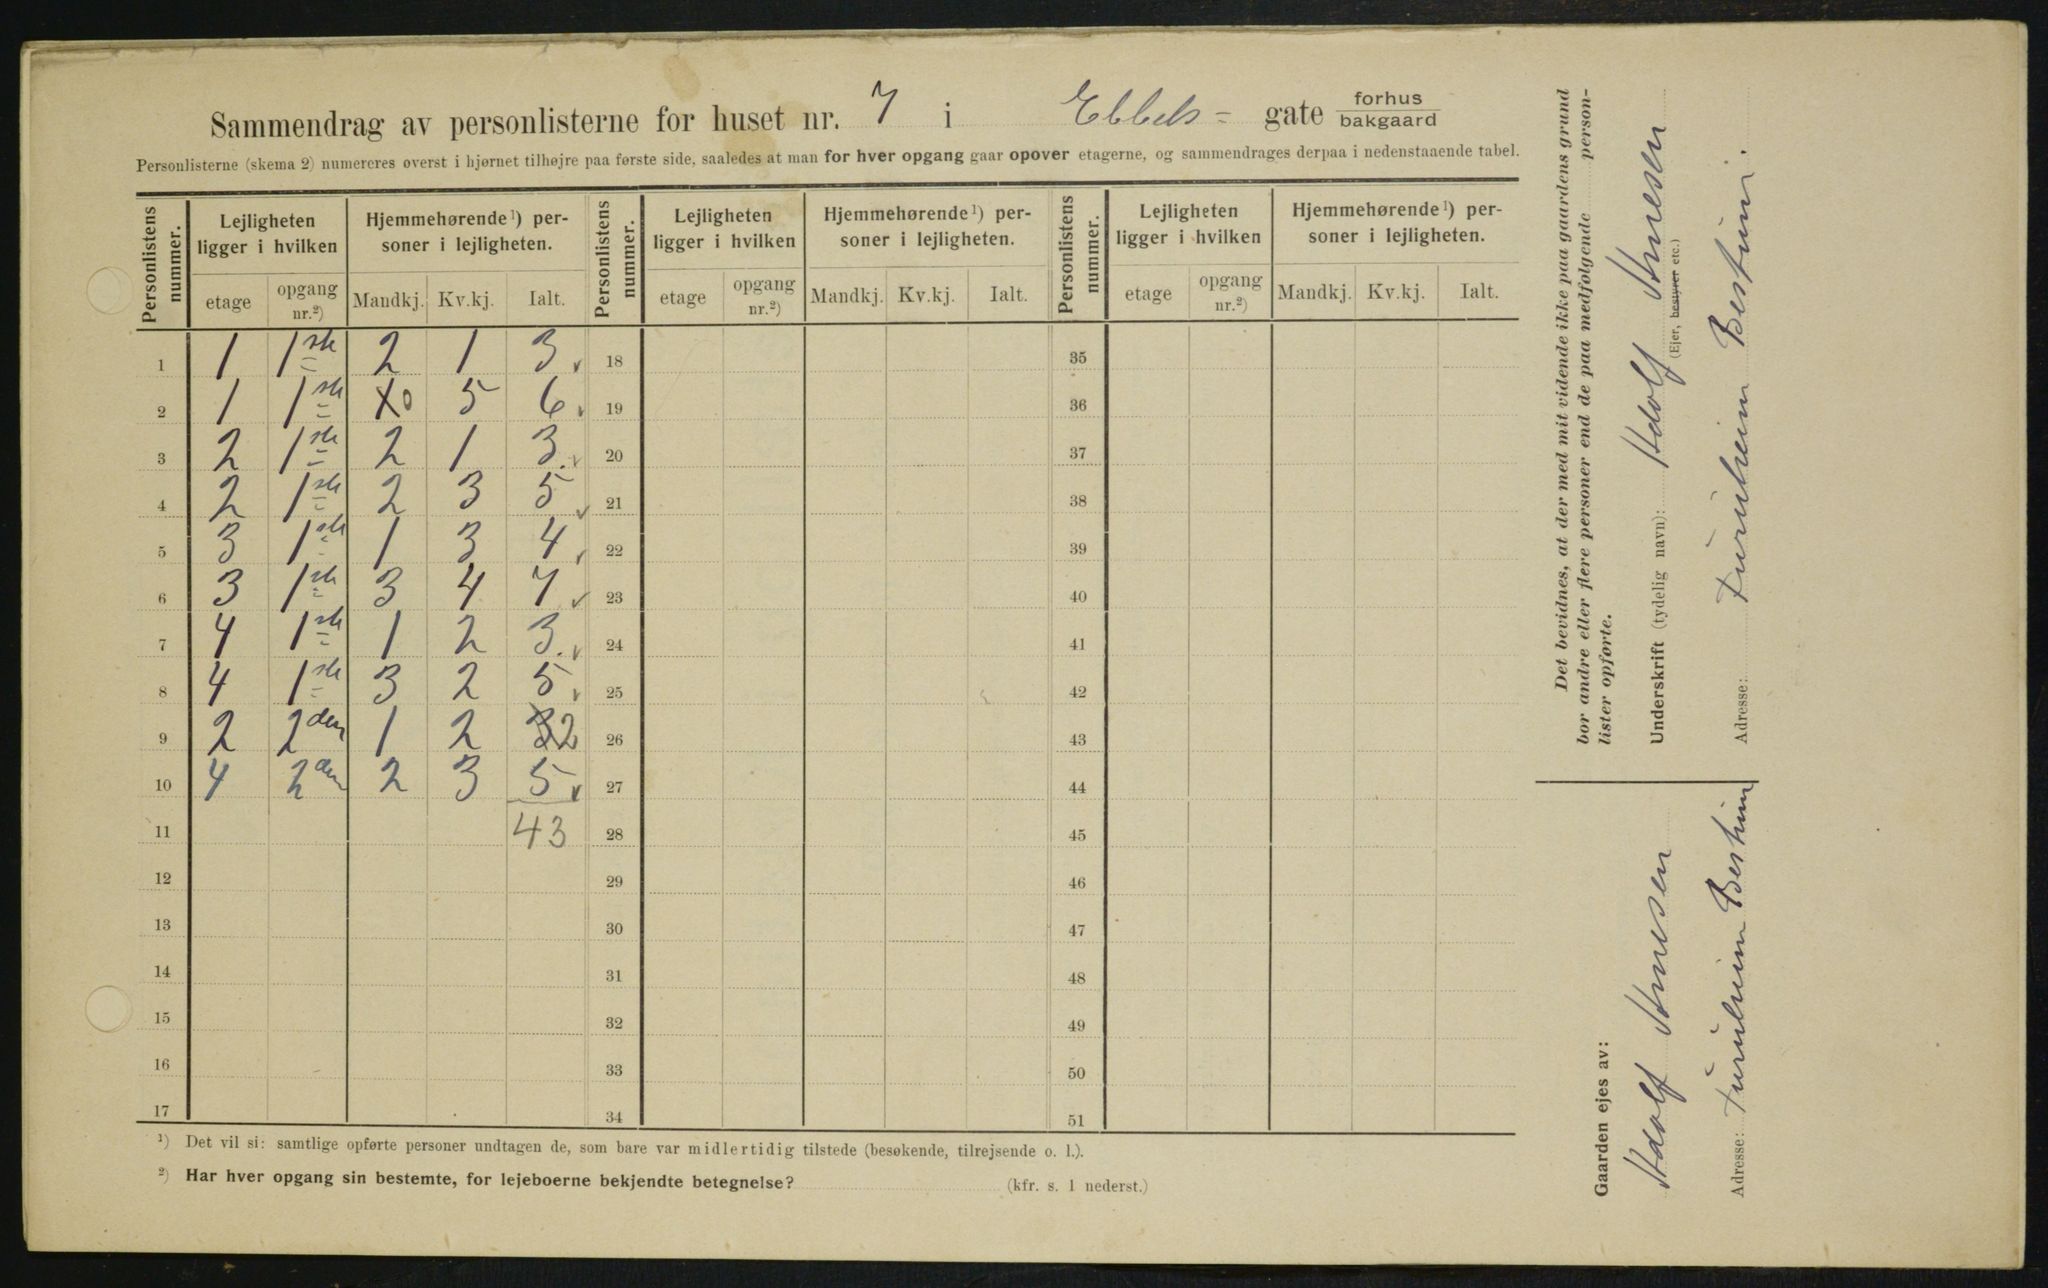 Sammendrag av personlisterne for huset nr. 7 i Ebbels- gate forhus bakgaard
Personlisterne (skema 2) numereres øverst i hjørnet tilhøjre paa første side, saaledes at man for hver opgang gaar opover etagerne, og sammendrages derpaa i nedenstaaende tabel.
Personlistens nummer. Lejligheten ligger i hvilken Hjemmehørende ¹) personer i lejligheten. Personlistens nummer. Lejligheten ligger i hvilken Hjemmehørende ¹) personer i lejligheten. Personlistens nummer. Lejligheten ligger i hvilken Hjemmehørende ¹) personer i lejligheten.
etage opgang nr.²) Mandkj. Kv.kj. Ialt. etage opgang nr.²) Mandkj. Kv.kj. Ialt. etage opgang nr.²) Mandkj. Kv.kj. Ialt.
1 1 1ste 2 1 3 18 35
2 1 1ste 0 5 6 19 36
3 2 1ste 2 1 3 20 37
4 2 1ste 2 3 5 21 38
5 3 1ste 1 3 4 22 39
6 3 1ste 3 4 7 23 40
7 4 1ste 1 2 3 24 41
8 4 1ste 3 2 5 25 42
9 2 2den 1 2 3 2 26 43
10 4 2den 2 3 5 27 44
11 43 28 45
12 29 46
13 30 47
14 31 48
15 32 49
16 33 50
17 34 51
¹) Det vil si: samtlige opførte personer undtagen de, som bare var midlertidig tilstede (besøkende, tilrejsende o. l.).
²) Har hver opgang sin bestemte, for lejeboerne bekjendte betegnelse? (kfr. s. 1 nederst.)
Det bevidnes, at der med mit vidende ikke paa gaardens grund
bor andre eller flere personer end de paa medfølgende person-
lister opførte.
Underskrift (tydelig navn): Adolf Arnesen
(Ejer, bestyrer etc.)
Adresse: Furuheim Bestum.
Gaarden ejes av:
Adolf Arnesen
Adresse: Furuheim Bestum